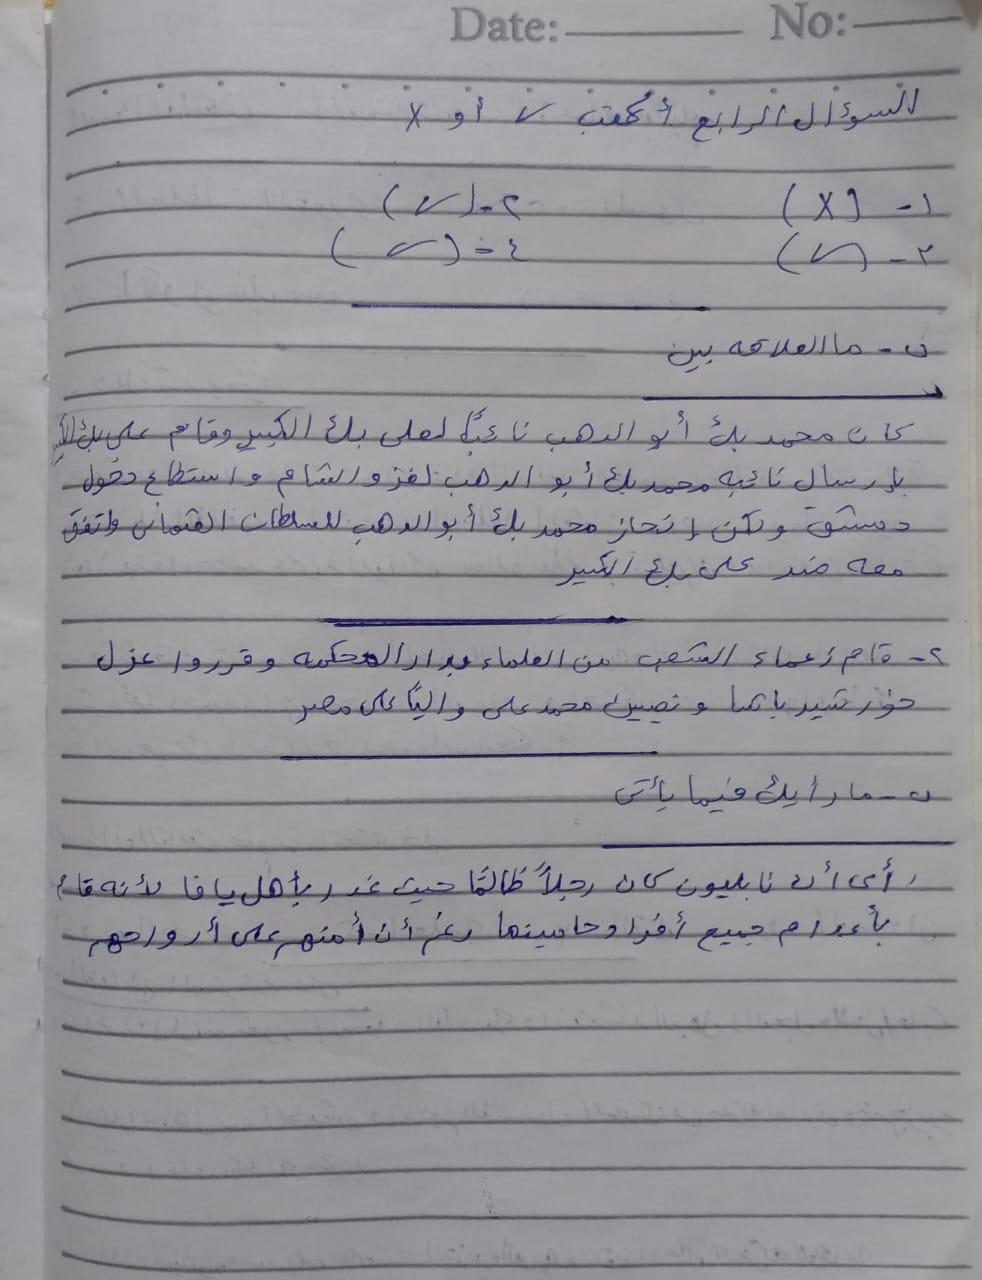 Date: No:
السؤال الرابع أكتب ✓ أو X
١- (X) ٢- (✓)
٣- (✓) ٤- (✓)
ب- ما العلاقه بين
كان محمد بك أبو الدهب نائبًا لعلى بك الكبير وقام على بك الكبير
بإرسال نائبه محمد بك أبو الدهب لغزو الشام واستطاع دخول
دمشق ولكن إنحاز محمد بك أبو الدهب للسلطان العثمانى واتفق
معه ضد على بك الكبير
٢- قام زعماء الشعب من العلماء بدار المحكمه وقرروا عزل
خورشيد باشا وتعيين محمد على واليًا على مصر
ب- ما رأيك فيما يأتى
رأى أن نابليون كان رجلاً ظالمًا حيث غدر بأهل يافا لأنه قام
بأعدام جميع أفراد حاميتها رغم أن أمنهم على أرواحهم